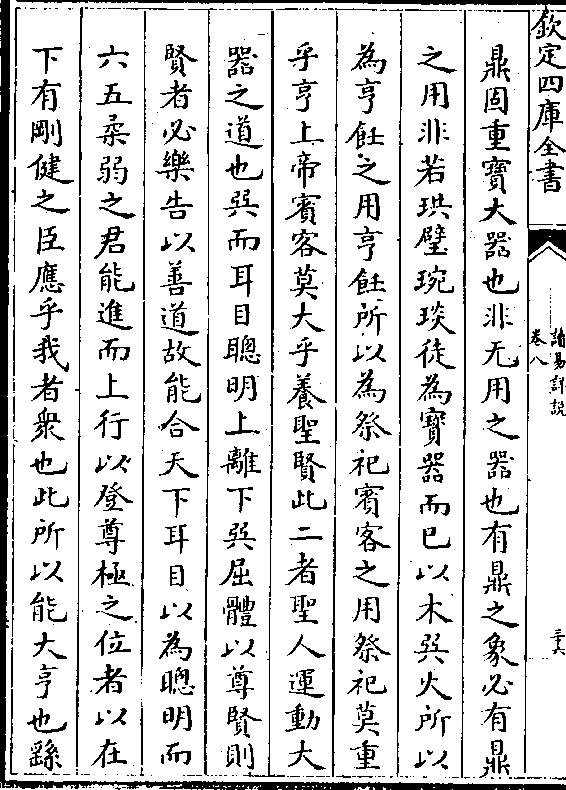 欽定四庫全書
讀易詳說
卷八
二十六
鼎固重寶大器也非无用之器也有鼎之象必有鼎
之用非若珙璧琬琰徒為寶器而已以木巽火所以
為亨飪之用亨飪所以為祭祀賓客之用祭祀莫重
乎亨上帝賓客莫大乎養聖賢此二者聖人運動大
器之道也巽而耳目聰明上離下巽屈體以尊賢則
賢者必樂告以善道故能合天下耳目以為聰明而
六五柔弱之君能進而上行以登尊極之位者以在
下有剛健之臣應乎我者衆也此所以能大亨也繇